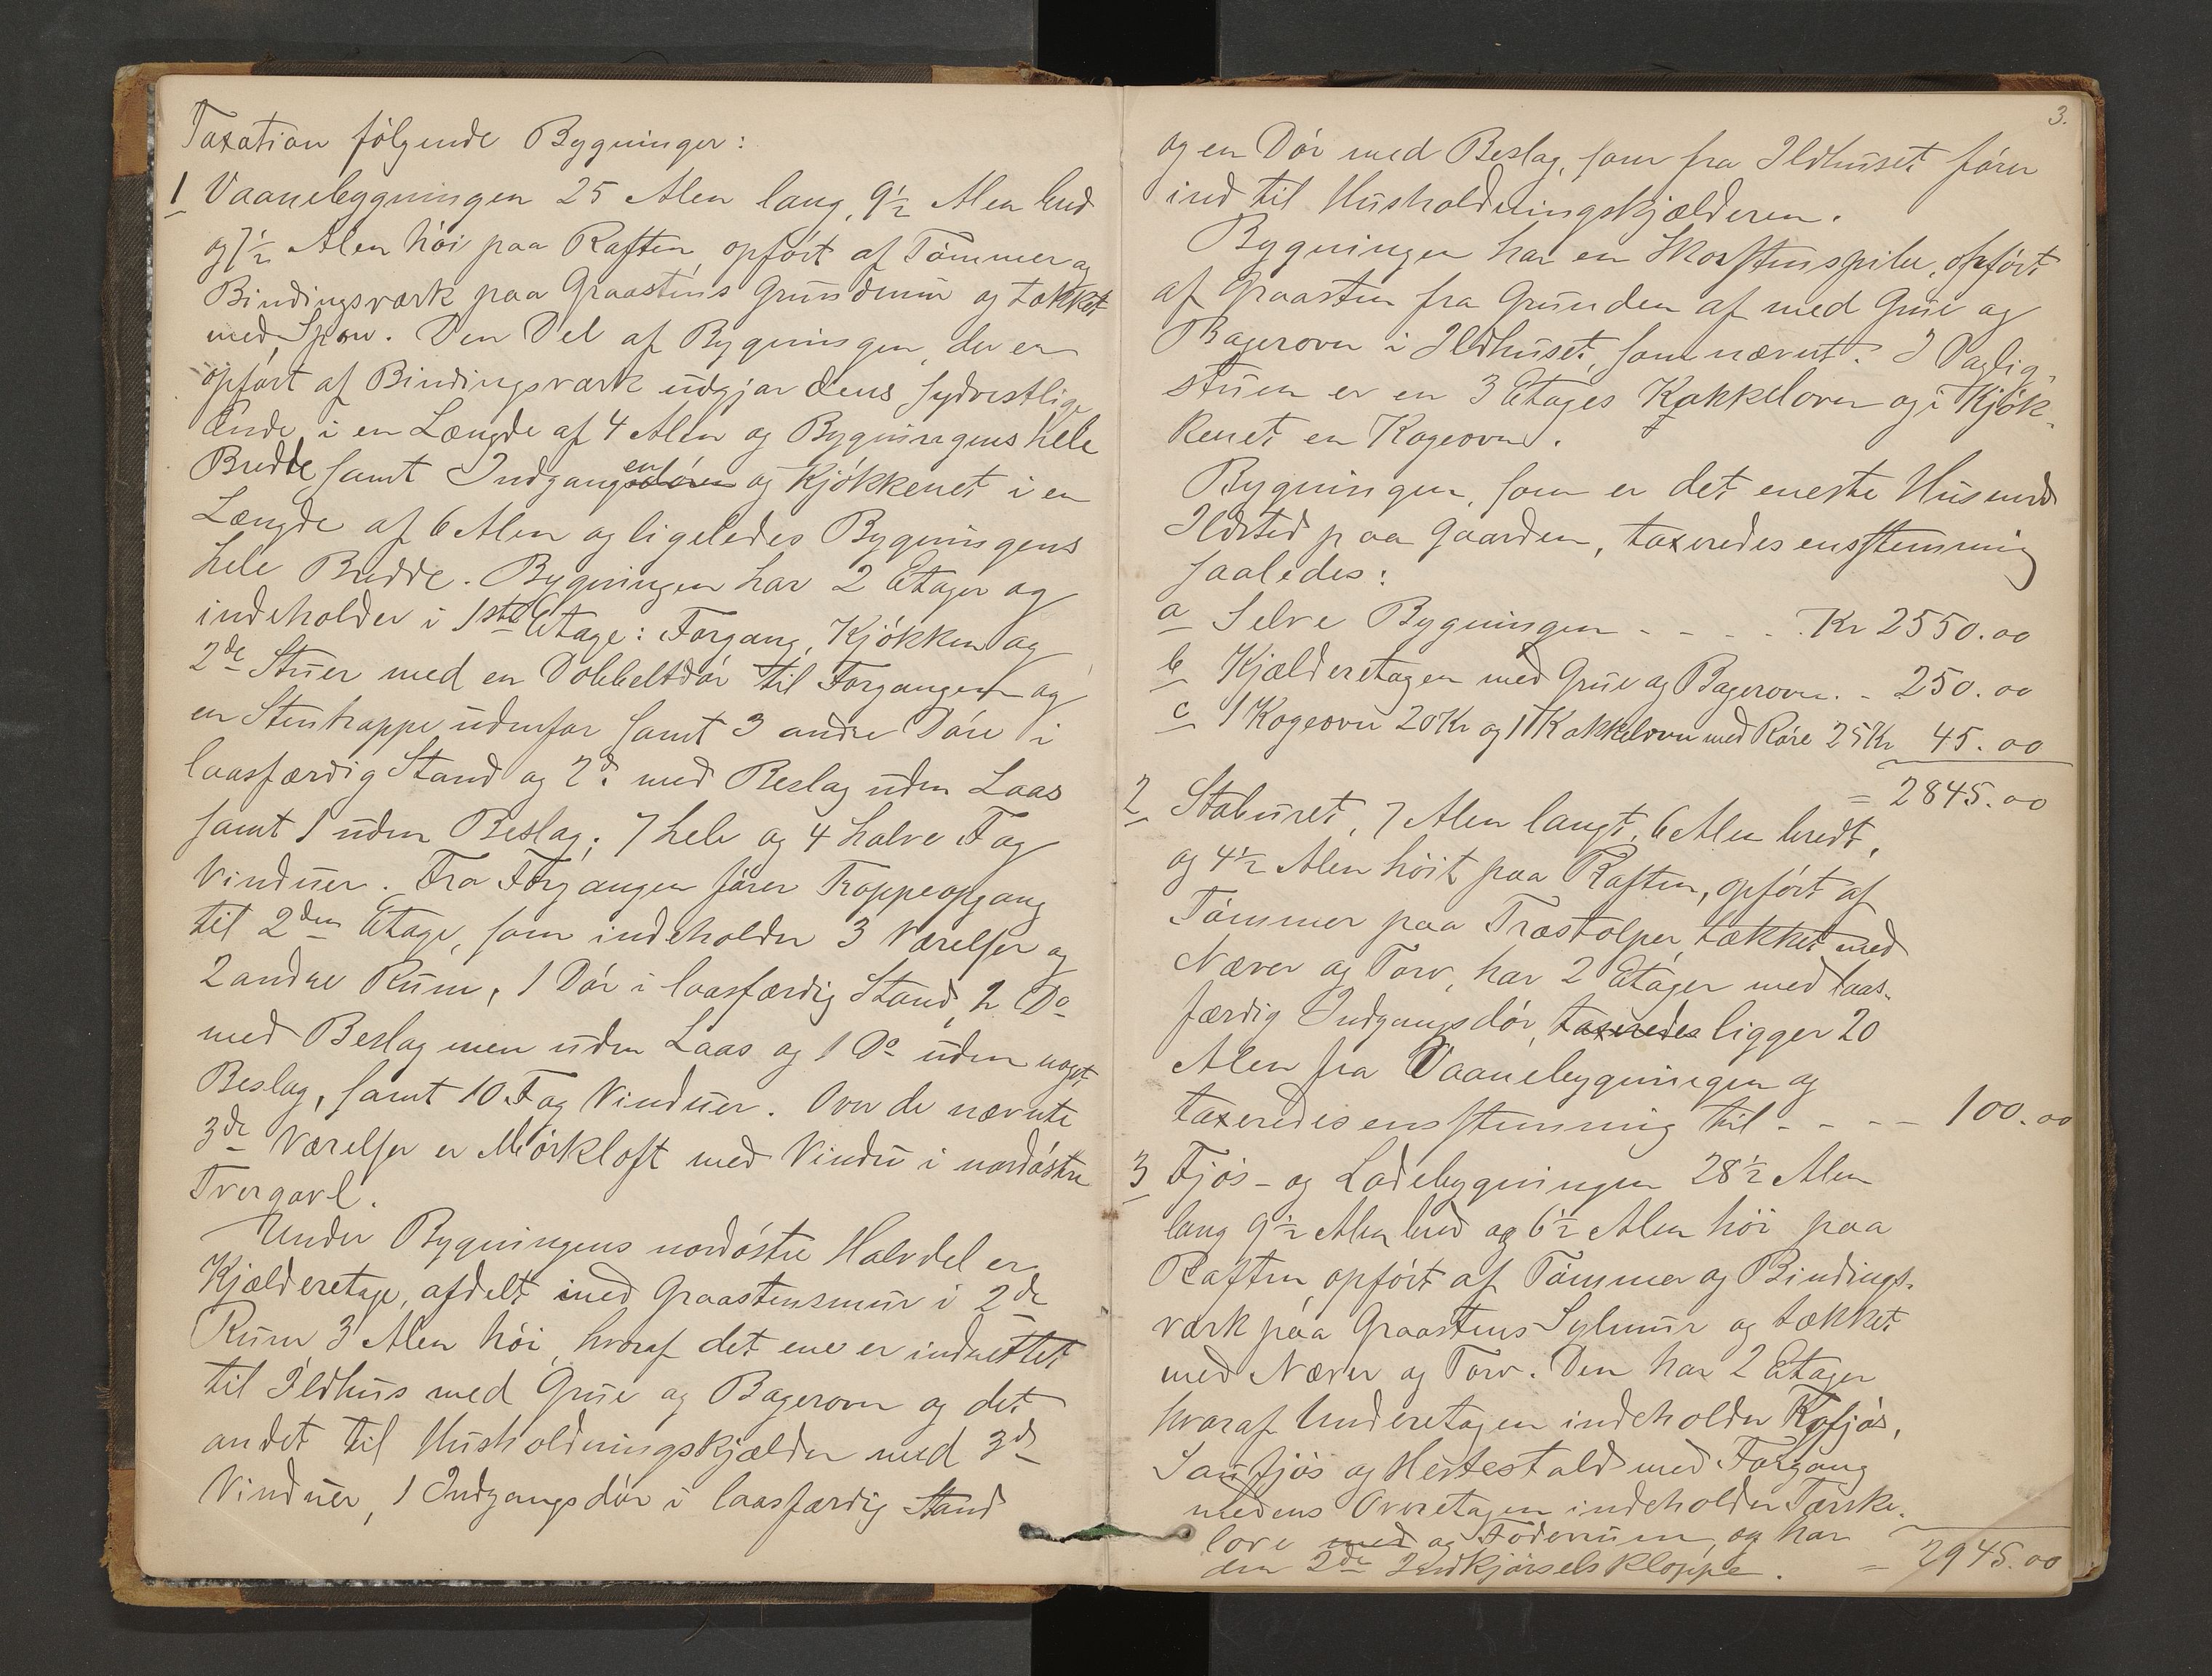 Taxation följende Bygninger:
1 Vaanebygningen 25 Alen lang, 9½ Alen bred
og 7½ Alen höi paa Raften, opfört af Tömmer og
Bindingsværk paa Graastens Grundmur og tækket
med Spon. Den Del af Bygningen, der er
opfört af Bindingsværk udgjör dens sydvestlige
Ende i en Længde af 4 Alen og Bygningens hele
Bredde samt Indgangsdören en og Kjökkenet i en
Længde af 6 Alen og ligeledes Bygningens
hele Bredde. Bygningen har 2 Etager og
indeholder i 1ste Etage: Forgang, Kjökken og
2de Stuer med en Dobbeltdör til Forgangen og
en Stentrappe udenfor samt 3 andre Döre i
laasfærdig Stand og 2d. med Beslag uden Laas
samt 1 uden Beslag; 7 hele og 4 halve Fag
Vinduer. Fra Forgangen förer Troppeopgang
til 2den Etage, som indeholder 3 Værelser og
2 andre Rum, 1 Dör i laasfærdig Stand, 2 Do
med Beslag men uden Laas og 1 Do uden noget
Beslag, samt 10 Fag Vinduer. Over de nævnte
3de Værelser er Mörkloft med Vindu i nordöstre
Tvergavl.
Under Bygningens nordöstre Halvdel er
Kjælderetage, afdelt med Graastensmur i 2de
Rum 3 Alen höi, hvoraf det ene er indrettet
til Ildhus med Grue og Bagerovn og det
andet til Husholdningskjælder med 3de
Vinduer, 1 Indgangsdör i laasfærdig Stand
3.
og en Dör med Beslag, som fra Ildhuset förer
ind til Husholdningskjælderen.
Bygningen har en Skorstenspibe, opfört
af Graasten fra Grunden af med Grue og
Bagerovn i Ildhuset, som nævnt. I Daglig-
stuen er en 3 Etages Kakkelovn og i Kjök-
kenet en Kogeovn.
Bygningen, som er det eneste Hus med
Ildsted paa Gaarden, taxeredes enstemmig
saaledes:
a Selve Bygningen - - - - Kr 2550.00
b Kjælderetagen med Grue og Bagerovn. - 250.00
c 1 Kogeovn 20 Kr og 1 Kakkelovn med Röre 25 Kr 45.00
= 2845.00
2 Staburet, 7 Alen langt, 6 Alen bredt,
og 4½ Alen höit paa Raften, opfört af
Tömmer paa Træstolper, tækket med
Næver og Torv, har 2 Etager med laas-
færdig Indgangsdör, taxeredes ligger 20
Alen fra Vaanebygningen og
taxeredes enstemmig til - - - - 100.00
3 Fjös- og Ladebygningen 28½ Alen
lang 9½ Alen bred og 6½ Alen höi paa
Raften, opfört af Tömmer og Bindings-
værk paa Graastens Sylmur og tækket
med Næver og Torv. Den har 2 Etager
hvoraf Underetagen indeholder Kofjös,
Saufjös og Hestestald med Forgang
medens Overetagen indeholder Tærske-
love med og Foderrum, og har
den 2de Indkjörselskloppe. = 2945.00